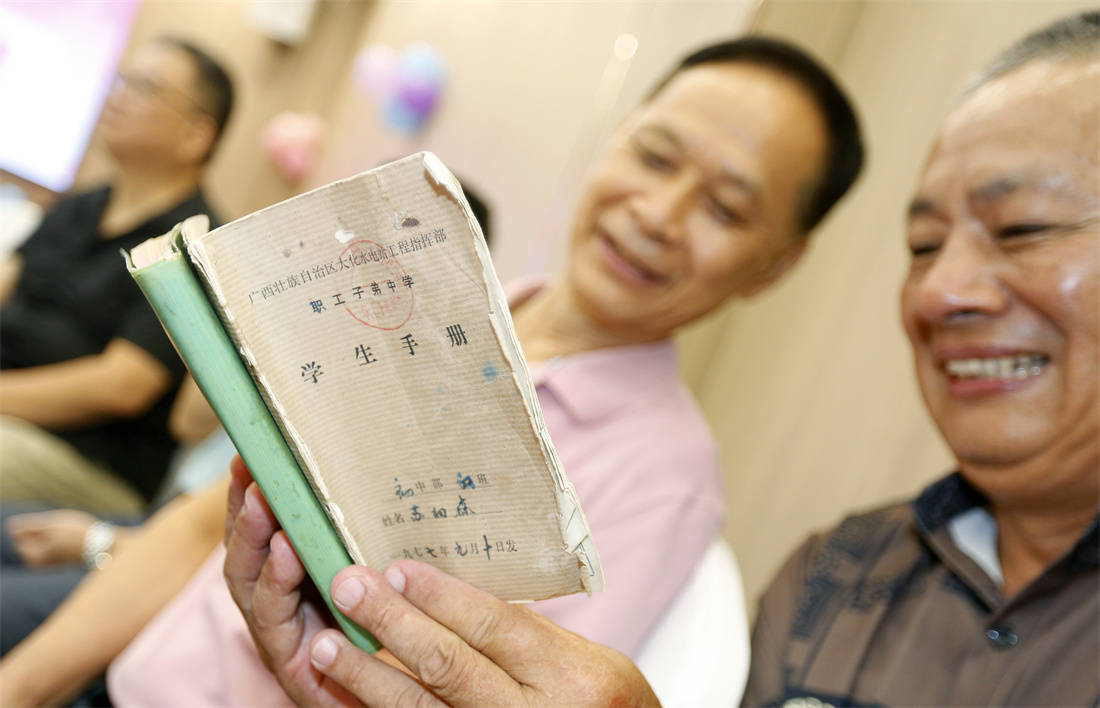 广西壮族自治区大化水电站工程指挥部
职工子弟中学
学生手册
初中部 班
姓名 苏 森
一九七七年九月十日发